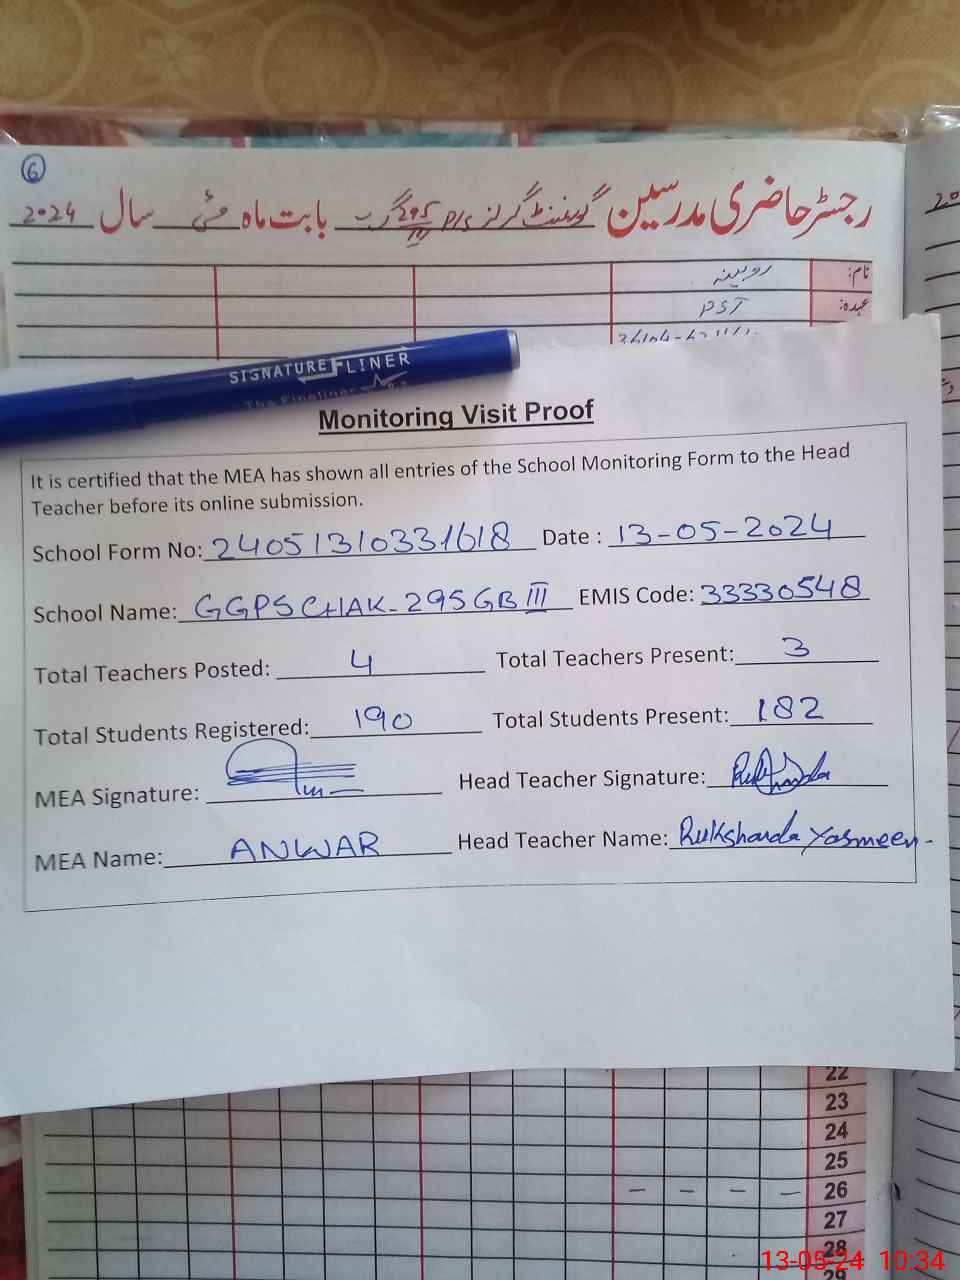 6
رجسٹر حاضری مدرسین گورنمنٹ گرلز P/S 295 گ ب III بابت ماہ مئی سال 2024
نام: روبینہ
عہدہ: PST
SIGNATURE FLINER
The Fineliner
Monitoring Visit Proof
It is certified that the MEA has shown all entries of the School Monitoring Form to the Head
Teacher before its online submission.
School Form No: 24051310331618 Date : 13-05-2024
School Name: GGPS CHAK-295 GB III EMIS Code: 33330548
Total Teachers Posted: 4 Total Teachers Present: 3
Total Students Registered: 190 Total Students Present: 182
MEA Signature: Head Teacher Signature: Rukhsanda
MEA Name: ANWAR Head Teacher Name: Rukshanda Yasmeen-
22
23
24
25
26
27
28
29
13-05-24 10:34